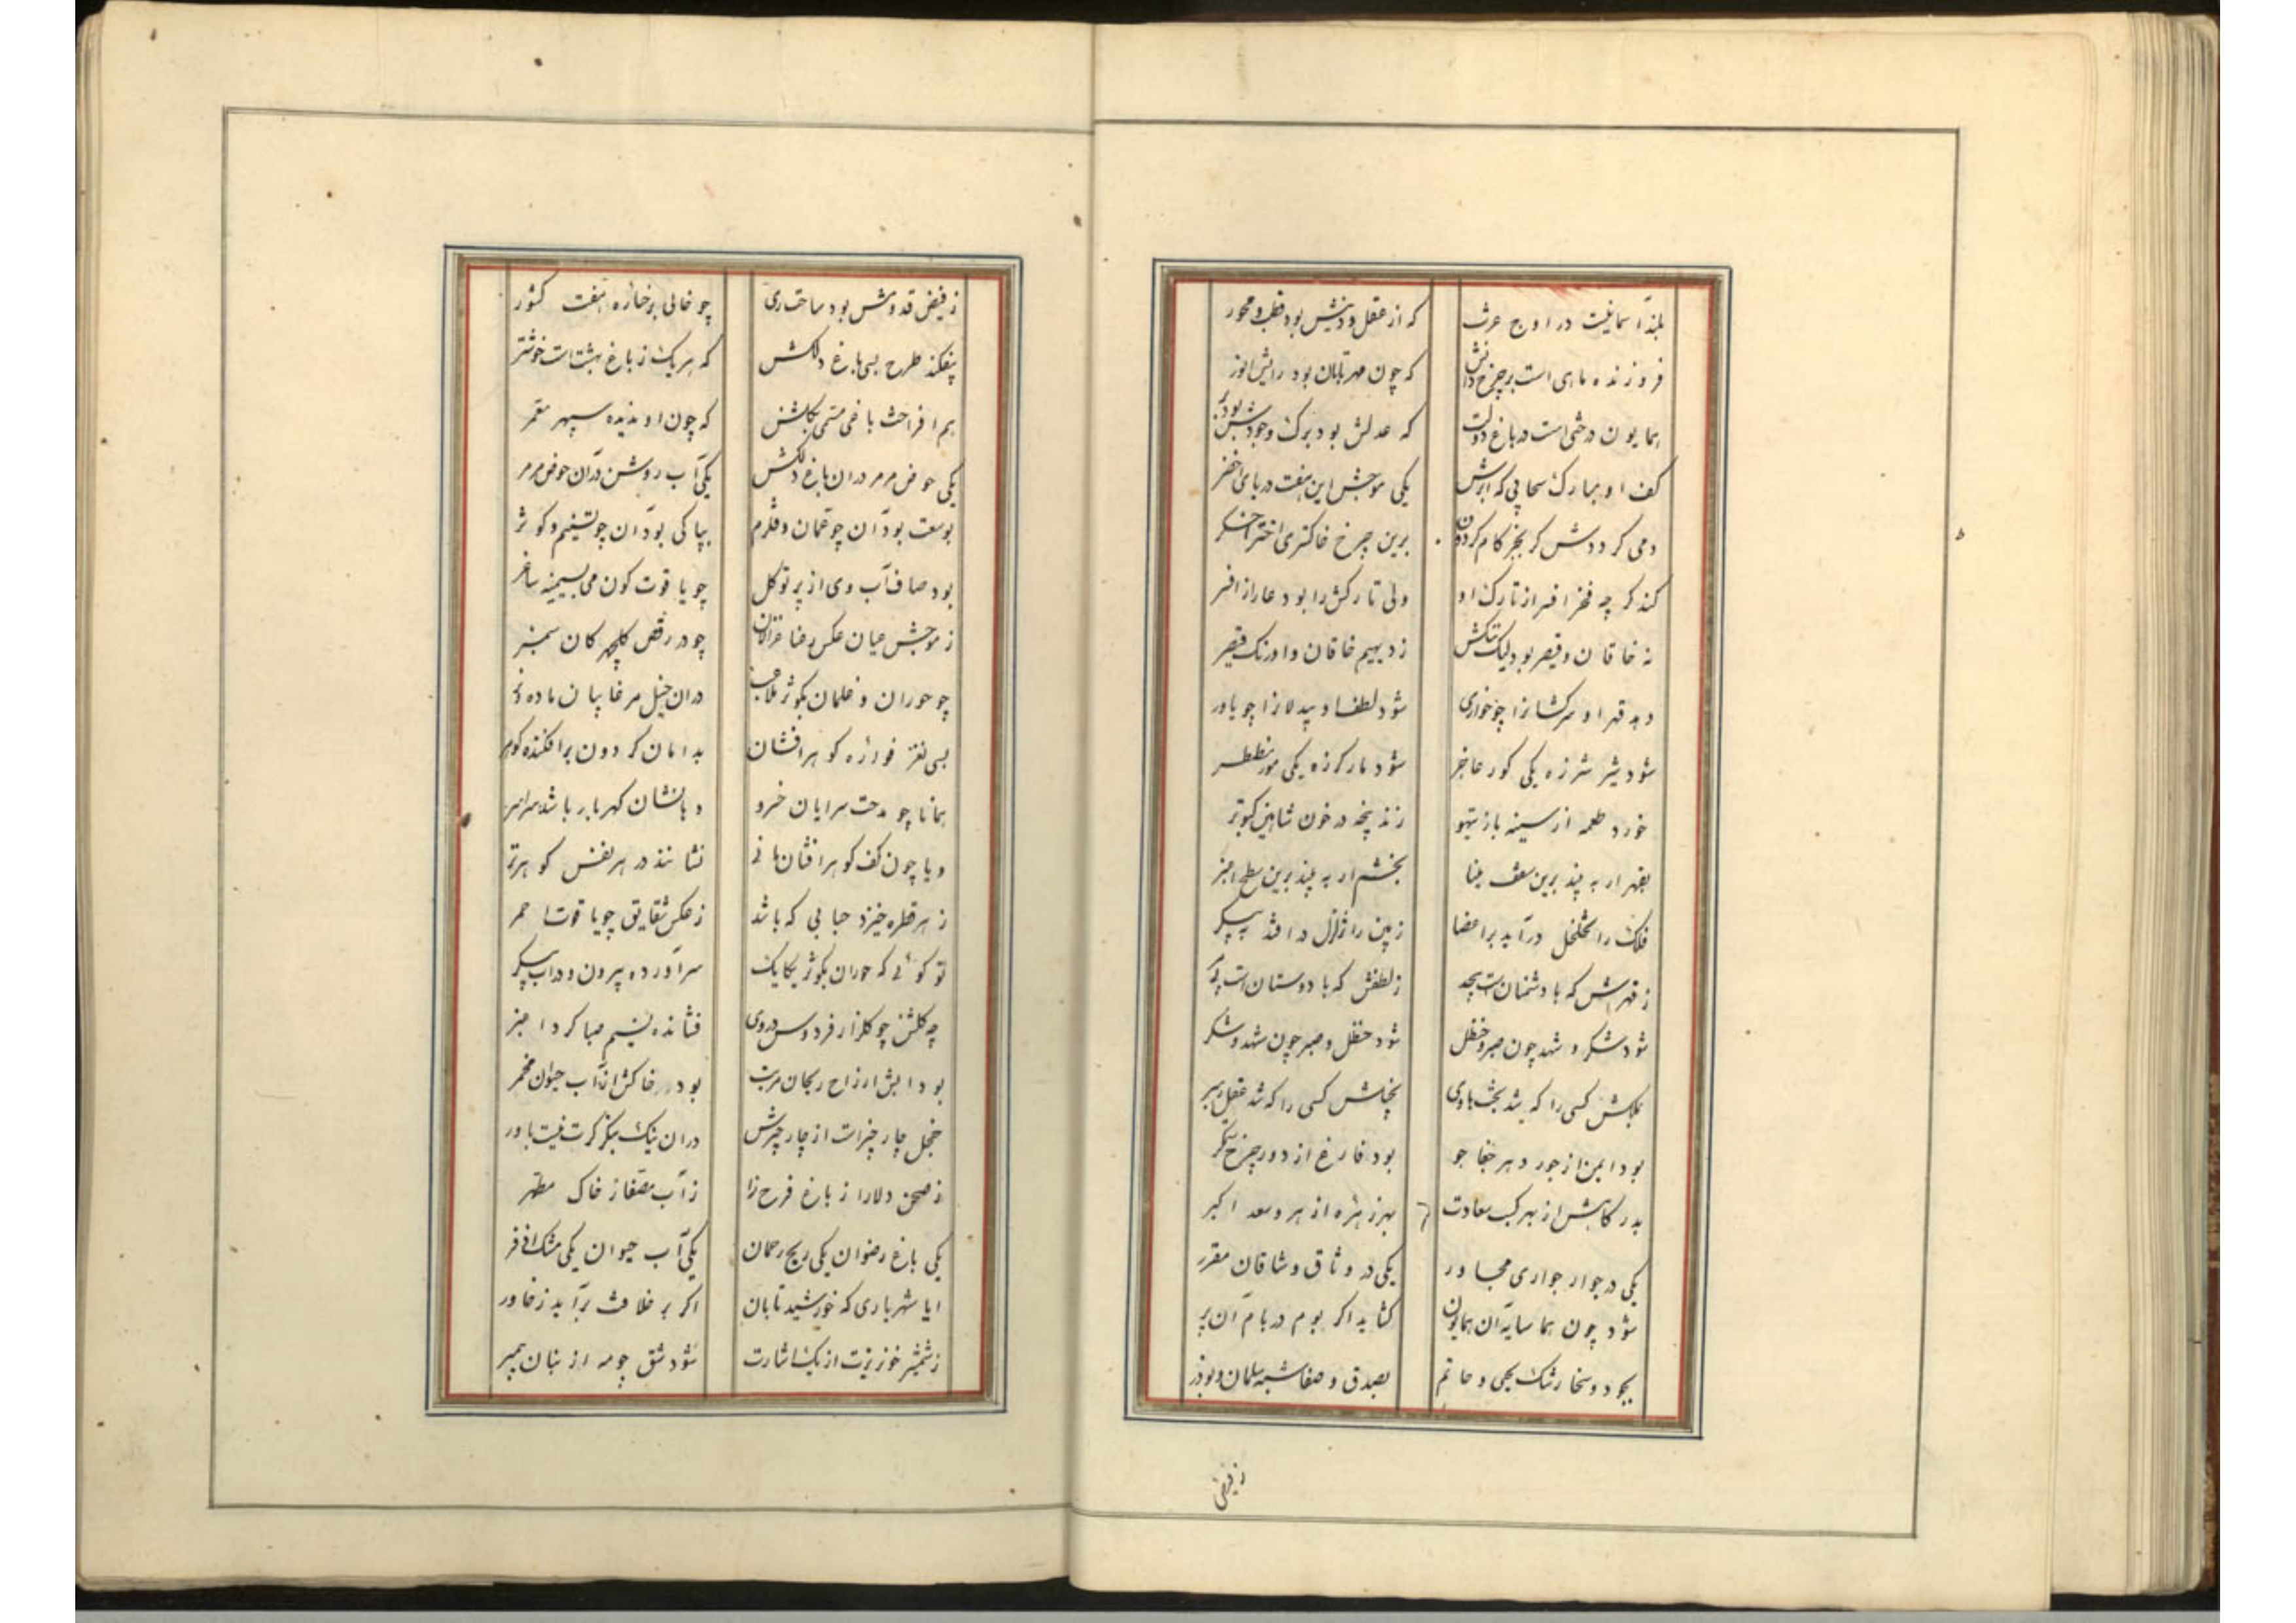 بلند آسمانیست در اوج عزت
که از عقل و دینش بود قطب و محور
فروزنده ماهی است بر چرخ دانش
که چون مهر تابان بود رایش انور
همایون درختی است در باغ دولت
که عدلش بود برک و جودش بود بر
کف او مبارک سحابی که ابرش
یکی موجش این هفت دریای اخضر
دمی کر دوش کر بجز کام کردون
برین چرخ خاکستری اختر اخکر
کند کر چه فخر افسر از تارک او
ولی تارکش را بود عار از افسر
نه خاقان و قیصر بود لیک ننکش
ز دیهیم خاقان و اورنک قیصر
دهد قهر او سرکشانرا چو خواری
شود لطف او بیدلانرا چو یاور
شود شیر شرزه یکی کور عاجز
شود مار کرزه یکی مور مضطر
خورد طعمه از سینه باز تیهو
زند پنجه در خون شاهین کبوتر
بقهر ار به بیند برین سقف مینا
بخشم ار به بیند برین سطح اغبر
فلک را تخلخل درآید بر اعضا
زمین را تزلزل در افتد به پیکر
ز قهرش که با دشمنان است بیحد
ز لطفش که با دوستان است بی مر
شود شکر و شهد چون صبر و حنظل
شود حنظل و صبر چون شهد و شکر
بملکش کسی را که شد بخت هادی
بخاکش کسی را که شد عقل رهبر
بود ایمن از جور دهر جفا جو
بود فارغ از دور چرخ ستمکر
بدرکاهش از بهر کسب سعادت
بهر ز هره از هر دو سعد اکبر
یکی در جوار جواری مجاور
یکی در وثاق وشاقان مقرر
شود چون هما سایه آن همایون
کشاید اکر بوم در بام آن پر
بجود و سخا رشک یحیی و حاتم
بصدق و صفا شبه سلمان و بوذر
ز فیض
ز فیض قدومش بود ساحت ری
چو خالی بر خساره هفت کشور
بیفکند طرح بسی باغ دلکش
که هر یک از باغ بهشت است خوشتر
هم افراخت باغی مسمی بکلشن
که چون او ندیده سپهر مقعر
یکی حوض مرمر در ان باغ دلکش
یکی آب روشن در آن حوض مرمر
بوسعت بود آن چو عمان و قلزم
بپاکی بود آن چو تسنیم و کوثر
بود صاف آب وی از پرتو کل
چو یاقوت کون می بسیمینه ساغر
ز موجش عیان عکس رعنا غزالان
چو در رقص کلچهر کان سمنبر
چو حوران و غلمان بکوثر ملاعب
در ان خیل مرغابیان ماده و نر
بسی نغز فواره کوهر افشان
بدامان کردون بر افکنده کوهر
همانا چو مدحت سرایان خسرو
دهانشان کهربار باشد سراسر
و یا چون کف کوهر افشان خانی
نشانند در هر نفس کوهر تر
ز هر قطره خیزد حبابی که باشد
ز عکس شقایق چو یاقوت احمر
تو کوئی که حوران بکوثر یکایک
سرآورده بیرون و در آب پیکر
چه کلشن چو کلزار فردوس در وی
فشانده نسیم صبا کرد اغبر
بود آبش از راح ریحان مرتب
بود خاکش از آب حیوان مخمر
خجل چار چیز است از چار چیزش
در ان نیک بنکر کرت نیست باور
ز صحن دلارا ز باغ فرح زا
ز آب مصفا ز خاک مطهر
یکی باغ رضوان یکی ریح رحمان
یکی آب حیوان یکی مشک اذفر
ایا شهریاری که خورشید تابان
اکر بر خلافت برآید ز خاور
ز شمشیر خونریزت از یک اشارت
شود شق چو مه از بنان پیمبر